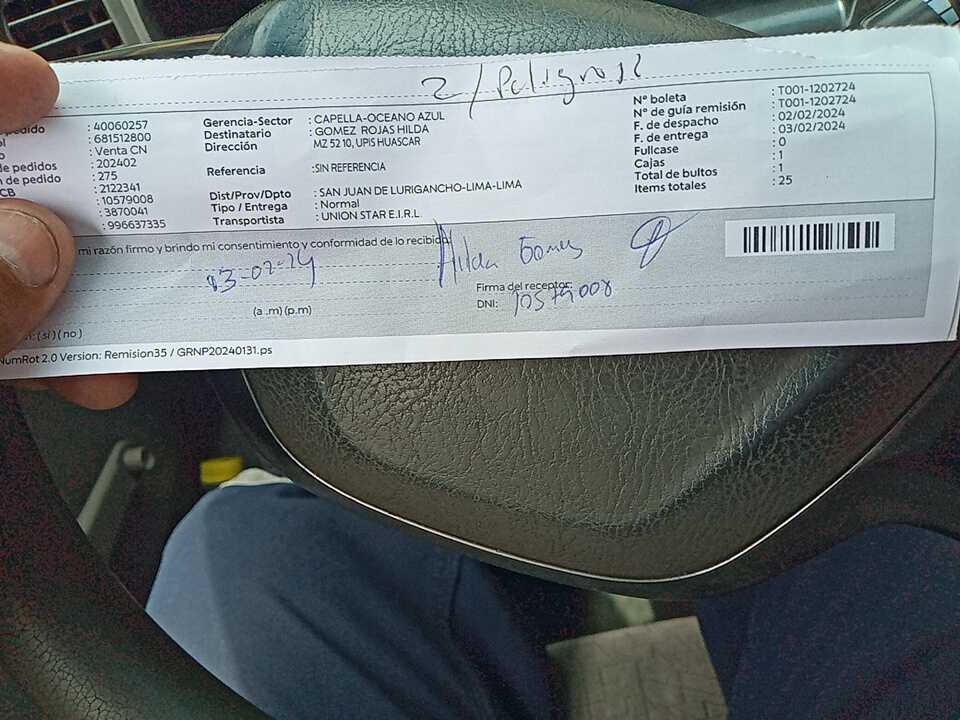 2 / Peligrosa
pedido : 40060257
: 681512800
: Venta CN
de pedidos : 202402
de pedido : 275
CB : 2122341
: 10579008
: 3870041
: 996637335
Gerencia-Sector : CAPELLA-OCEANO AZUL
Destinatario : GOMEZ ROJAS HILDA
Dirección MZ 52 10, UPIS HUASCAR
Referencia :SIN REFERENCIA
Dist/Prov/Dpto : SAN JUAN DE LURIGANCHO-LIMA-LIMA
Tipo / Entrega : Normal
Transportista : UNION STAR E.I.R.L
N° boleta : T001-1202724
N° de guía remisión : T001-1202724
F. de despacho : 02/02/2024
F. de entrega : 03/02/2024
Fullcase : 0
Cajas : 1
Total de bultos : 1
Items totales : 25
mi razón firmo y brindo mi consentimiento y conformidad de lo recibido
03-02-24
Hilda Gomez
(a .m) (p.m)
Firma del receptor:
DNI: 10579008
(si) (no)
NumRot 2.0 Version: Remision35 / GRNP20240131.ps